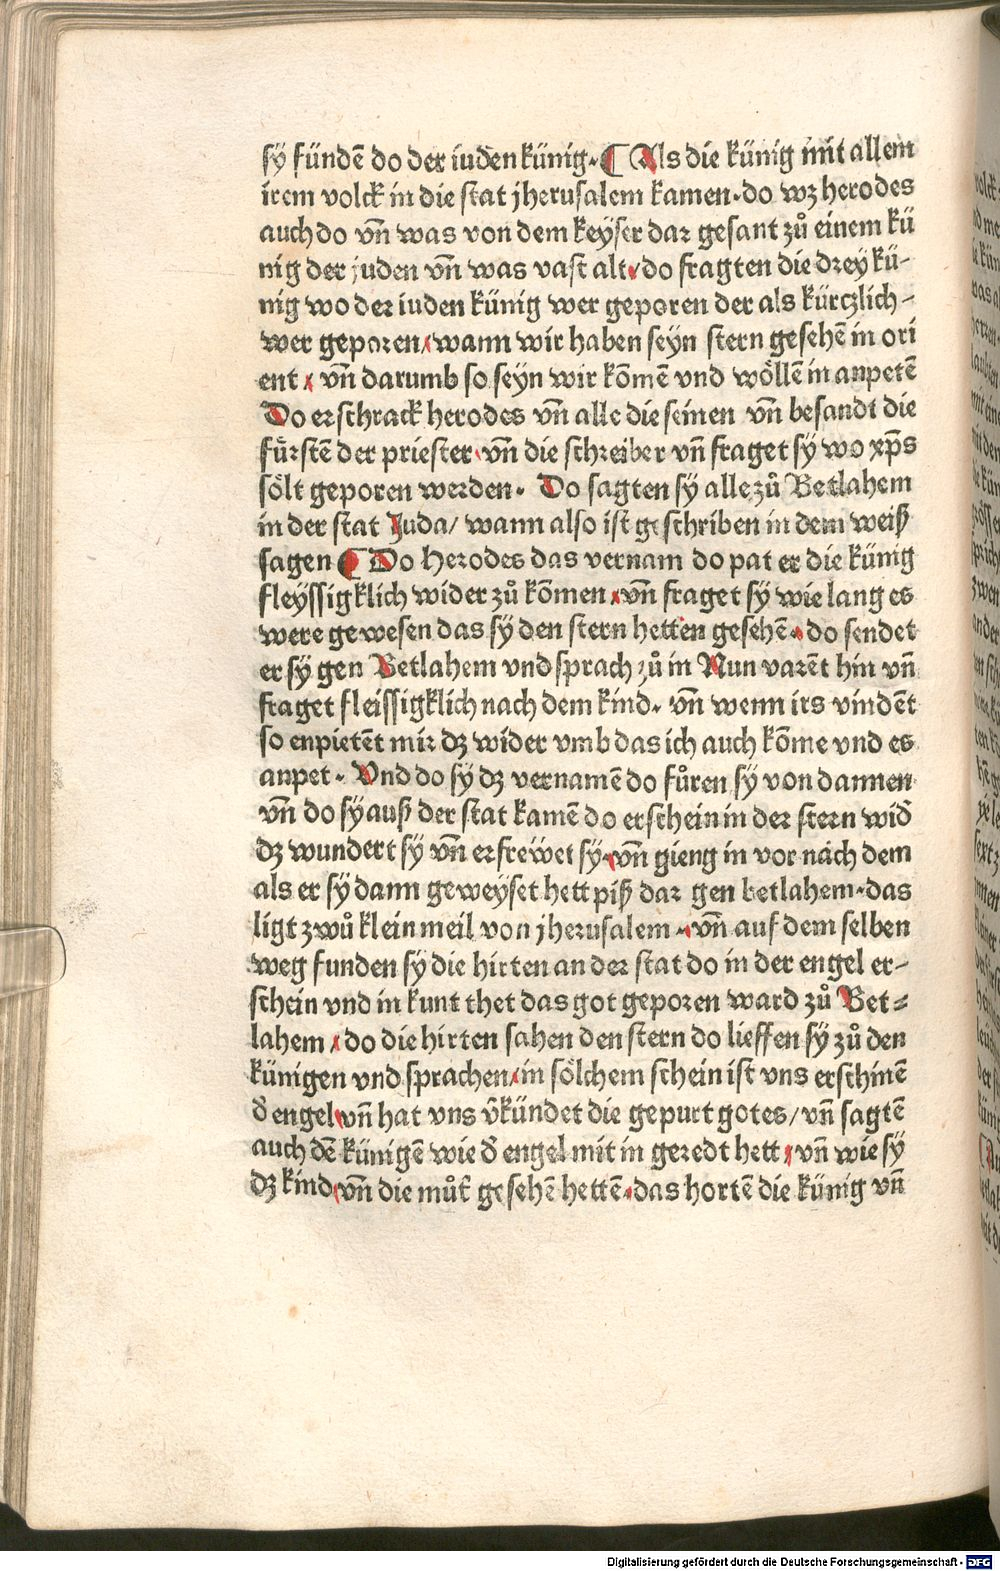 sÿ fündē do der iuden künig. ¶ Als die künig mit allem
irem volck in die stat jherusalem kamen. do wz herodes
auch do vn̄ was von dem keyser dar gesant zů einem kü
nig der juden vn̄ was vast alt / do fragten die drey kü-
nig wo der iuden künig wer geporen der als kürczlich-
wer geporen / wann wir haben seyn stern gesehē in ori
ent / vn̄ darumb so seyn wir kōmē vnd wöllē in anpetē
Do erschrack herodes vn̄ alle die seinen vn̄ besandt die
fürstē der priester / vn̄ die schreiber vn̄ fraget sy wo xp̄s
sölt geporen werden. Do sagten sÿ alle zů Betlahem
in der stat Juda / wann also ist geschriben in dem weiß
sagen ¶ Do Herodes das vernam do pat er die künig
fleÿssigklich wider zů kōmen / vn̄ fraget sy wie lang es
were gewesen das sÿ den stern hetten gesehē. do sendet
er sÿ gen Betlahem vnd sprach zů in Nun varēt hin vn̄
fraget fleissigklich nach dem kind. vn̄ wenn irs vindēt
so enpietēt mir dz wider vmb das ich auch kōme vnd es
anpet. Vnd do sÿ dz vernamē do fůren sÿ von dannen
vn̄ do sÿ auß der stat kamē do erschein in der stern wid̄
dz wundert sÿ vn̄ erfrewet sy / vn̄ gieng in vor nach dem
als er sÿ dann geweÿset hett piß dar gen betlahem. das
ligt zwů klein meil von jherusalem. / vn̄ auf dem selben
weg funden sÿ die hirten an der stat do in der engel er-
schein vnd in kunt thet das got geporen ward zů Bet=
lahem / do die hirten sahen den stern do lieffen sÿ zů den
künigen vnd sprachen / in sölchem schein ist vns erschinē
d̄ engel / vn̄ hat vns v̄kündet die gepurt gotes / vn̄ sagtē
auch dē künigē wie d̄ engel mit in geredt hett / vn̄ wie sÿ
dz kind / vn̄ die můt̄ gesehē hettē. das hortē die künig vn̄
Digitalisierung gefördert durch die Deutsche Forschungsgemeinschaft - DFG